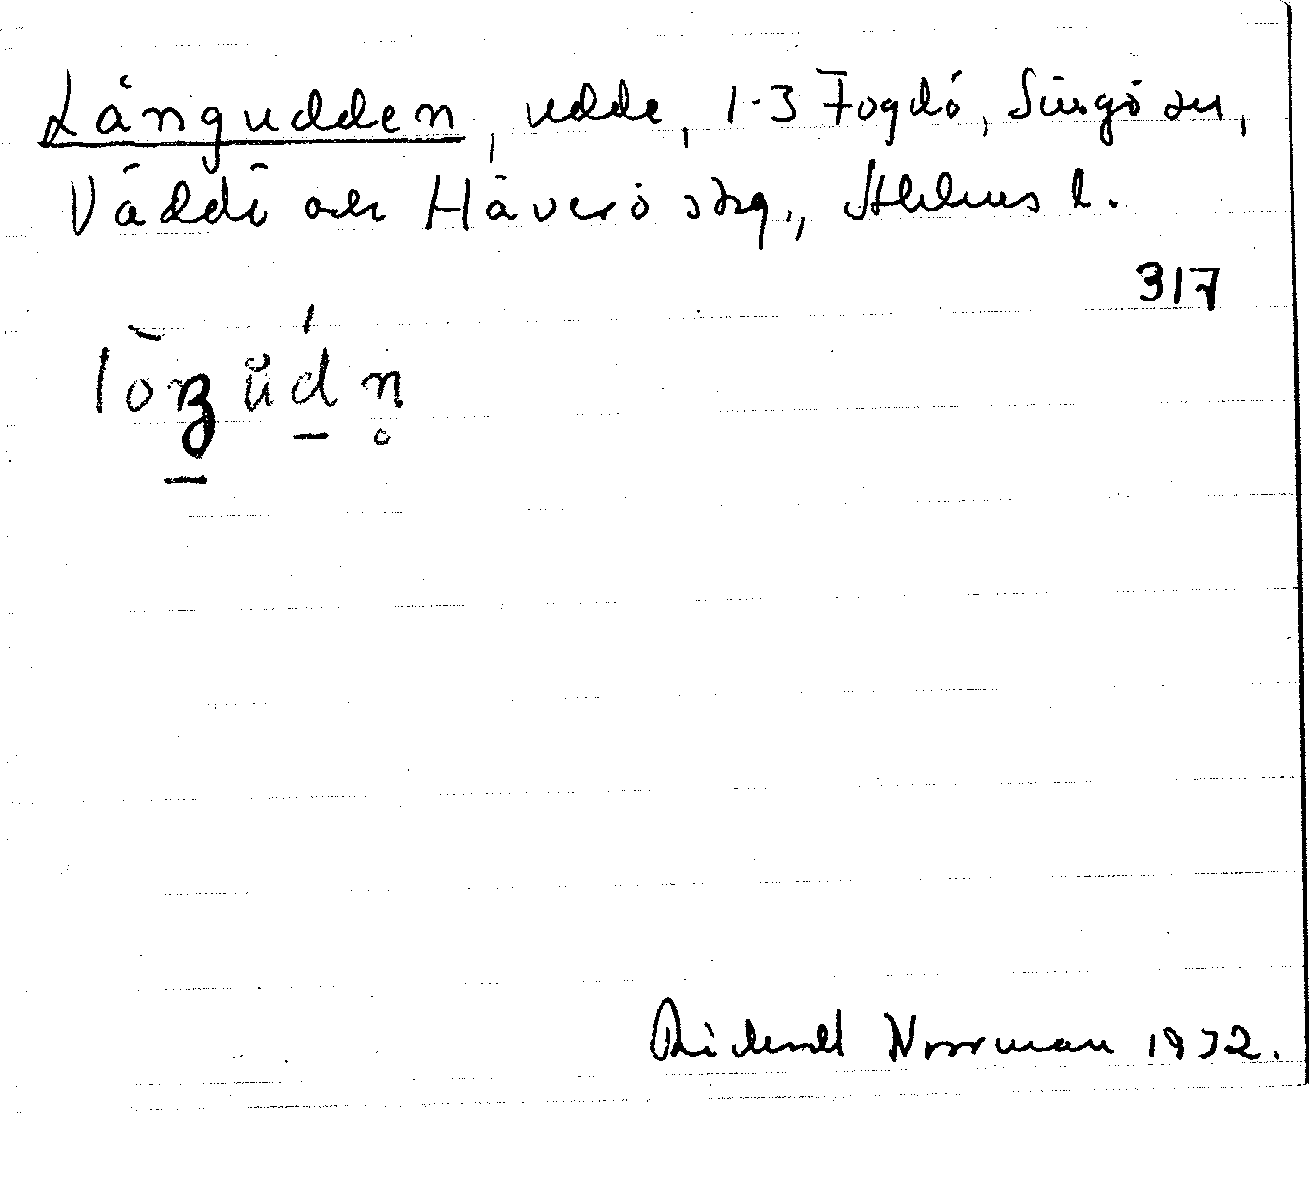 Långudden, udde, 1-3 Fogdö, Singö sn,
Väddö och Häverö skg., Sthlms l.
317
Rickard Norrman 1932.